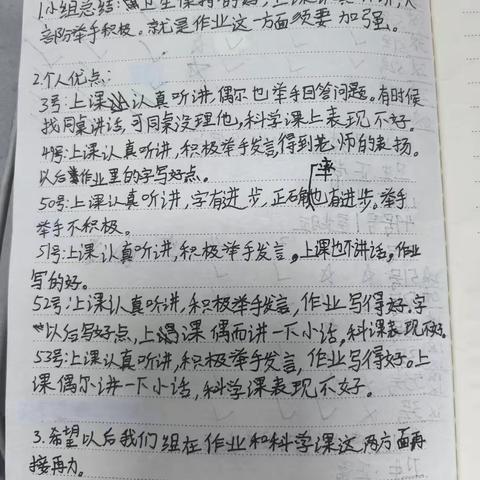 1.小组总结:卫生保持的好,上课
部份举手积极。就是作业这一方面须要加强。
2.个人优点:
3号:上课认真听讲,偶尔也举手回答问题。有时候
找同桌讲话,可同桌没理他,科学课上表现不好。
49号:上课认真听讲,积极举手发言得到老师的表扬。
以后作业里的字写好点。
50号:上课认真听讲,字有进步,正确率也有进步。举手
举手不积极。
51号:上课认真听讲,积极举手发言,上课也不讲话,作业
写的好。
52号:上课认真听讲,积极举手发言,作业写得好。字
以后写好点,上课偶而讲一下小话,科课表现不好。
53号:上课认真听讲,积极举手发言,作业写得好。上
课偶尔讲一下小话,科学课表现不好。
3.希望以后我们组在作业和科学课这两方面再
接再力。